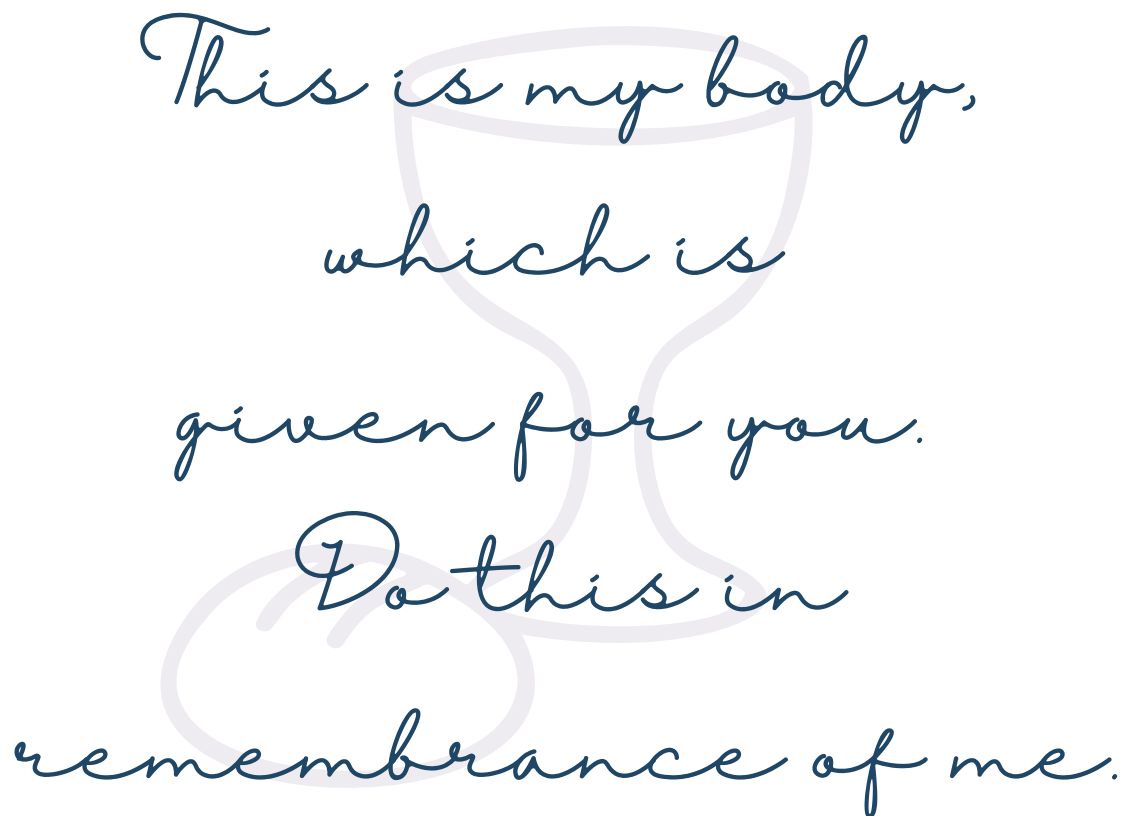 This is my body,
which is
given for you.
Do this in
remembrance of me.